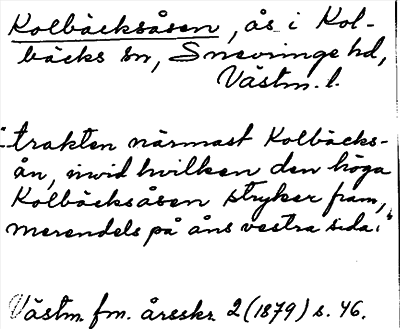 Kolbäcksåsen, ås i Kol-
bäcks sn, Snevringe hd,
Västm. l.
"trakten närmast Kolbäcks-
ån, invid hvilken den höga
Kolbäcksåsen stryker fram,
merendels på åns vestra sida."
Västm. fm. årsskr. 2 (1879) s. 46.